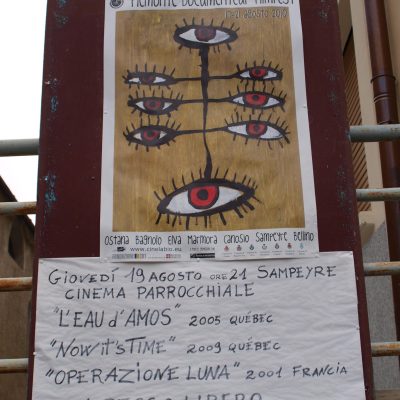 Piemonte Documenteur Filmfest
17-21 agosto 2010
Ostana Bagnolo Elva Marmora Canosio Sampeyre Bellino
www.cinelabio.eu
GIOVEDÍ 19 AGOSTO ORE 21 SAMPEYRE
CINEMA PARROCCHIALE
"L'EAU d'AMOS" 2005 QUÉBEC
"NOW it'S TIME" 2009 QUÉBEC
"OPERAZIONE LUNA" 2001 FRANCIA
INGRESSO LIBERO